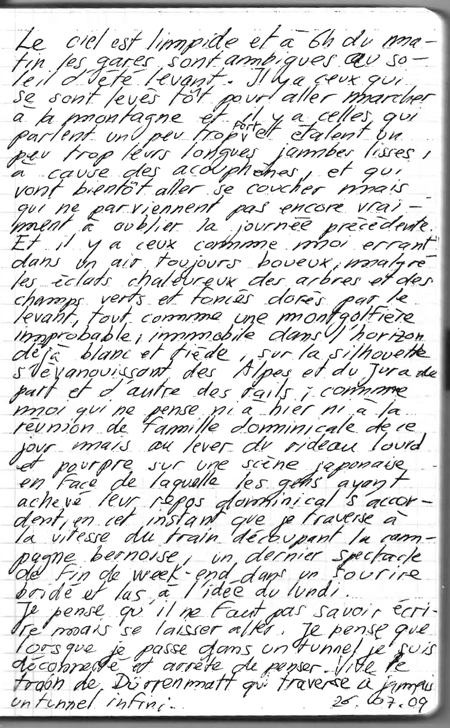 Le ciel est limpide et à 6h du ma-
tin les gares sont ambigues au so-
leil d'été levant. Il y a ceux qui
se sont levés tôt pour aller marcher
à la montagne et il y a celles qui
parlent un peu trop fort et étalent un
peu trop leurs longues jambes lisses,
à cause des acouphènes, et qui
vont bientôt aller se coucher mais
qui ne parviennent pas encore vrai-
ment à oublier la journée précédente.
Et il y a ceux comme moi errant
dans un air toujours boueux, malgré
les éclats chaleureux des arbres et des
champs verts et foncés dorés par le
levant, tout comme une montgolfière
improbable, immobile dans l'horizon
déjà blanc et tiède, sur la silhouette
s'évanouissant des Alpes et du Jura de
part et d'autre des rails ; comme
moi qui ne pense ni à hier ni à la
réunion de famille dominicale de ce
jour mais au lever du rideau lourd
et pourpre sur une scène japonaise
en face de laquelle les gens ayant
achevé leur repos dominical s'accor-
dent, en cet instant que je traverse à
la vitesse du train découpant la cam-
pagne bernoise, un dernier spectacle
de fin de week-end dans un sourire
bridé et las, à l'idée du lundi.
Je pense qu'il ne faut pas savoir écri-
re mais se laisser aller. Je pense que
lorsque je passe dans un tunnel je suis
déconnecté et arrête de penser. Vive le
train de Dürrenmatt qui traverse à jamais
un tunnel infini. 26.07.09